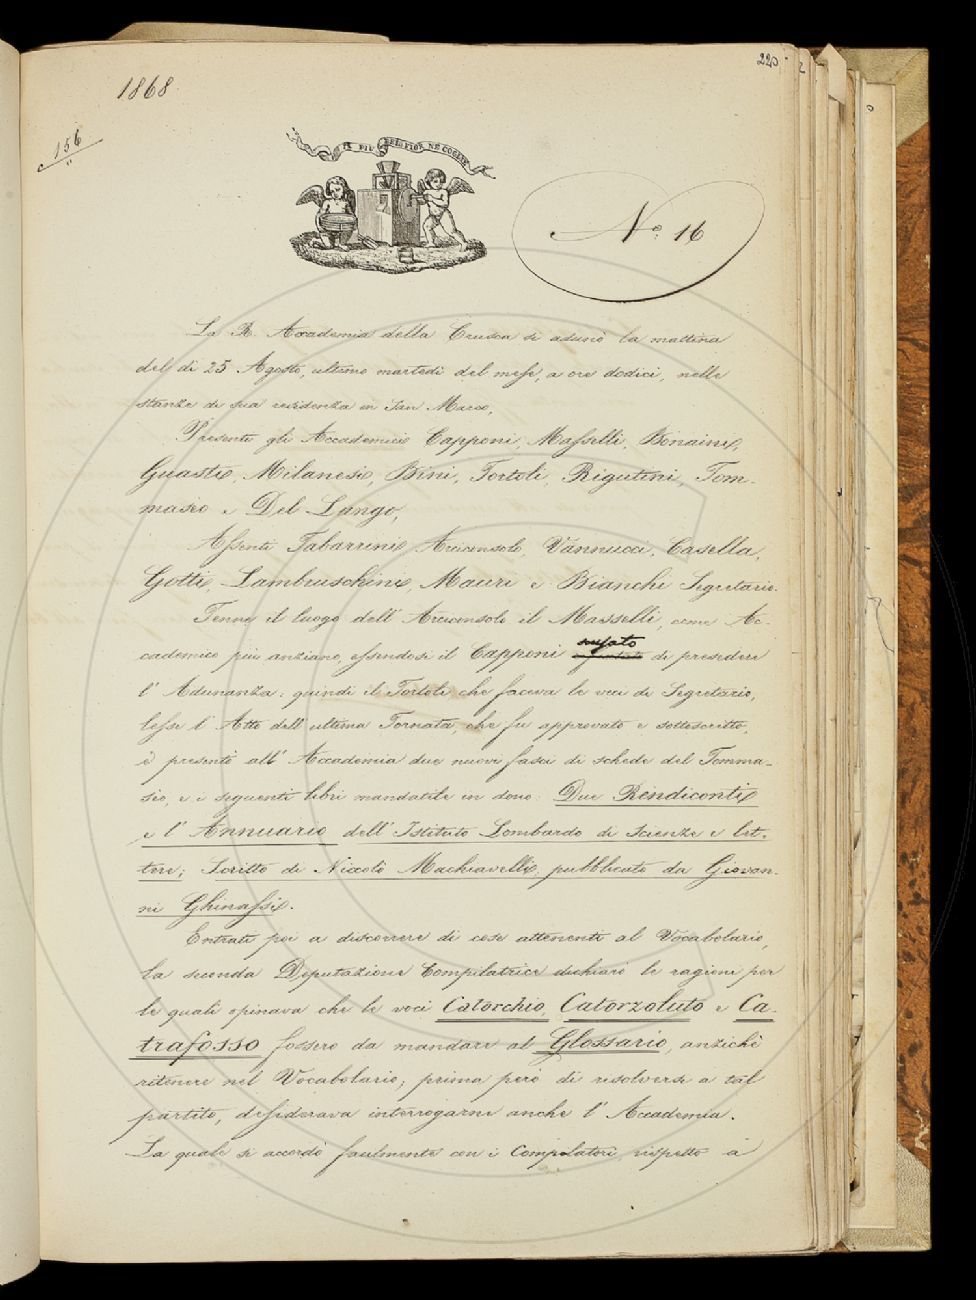 220
1868
156
IL PIÙ BEL FIOR NE COGLIE
N.° 16
La R. Accademia della Crusca si adunò la mattina
del dì 25 Agosto, ultimo martedì del mese, a ore dodici, nelle
stanze di sua residenza in San Marco,
Presenti gli Accademici Capponi, Masselli, Bonaini,
Guasti, Milanesi, Bini, Tortoli, Rigutini, Tom-
maseo e Del Lungo,
Assenti Tabarrini Arciconsolo, Vannucci, Casella,
Gotti, Lambruschini, Mauri e Bianchi Segretario.
Tenne il luogo dell' Arciconsolo il Masselli, come Ac-
cademico più anziano, essendosi il Capponi scusato di presedere
l' Adunanza: quindi il Tortoli che faceva le veci di Segretario,
lesse l' Atto dell' ultima Tornata, che fu approvato e sottoscritto,
e presentò all' Accademia due nuovi fasci di schede del Tomma-
seo, e i seguenti libri mandatile in dono: Due Rendiconti
e l' Annuario dell' Istituto Lombardo di Scienze e Let-
tere; Scritto di Niccolò Machiavelli, pubblicato da Giovan-
ni Ghinassi.
Entrati poi a discorrere di cose attenenti al Vocabolario,
la seconda Deputazione Compilatrice dichiarò le ragioni per
le quali opinava che le voci Catorchio, Catorzoluto e Ca-
trafosso fossero da mandare al Glossario, anzichè
ritenere nel Vocabolario; prima però di risolversi a tal
partito, desiderava interrogarne anche l' Accademia.
La quale si accordò facilmente con i Compilatori rispetto a